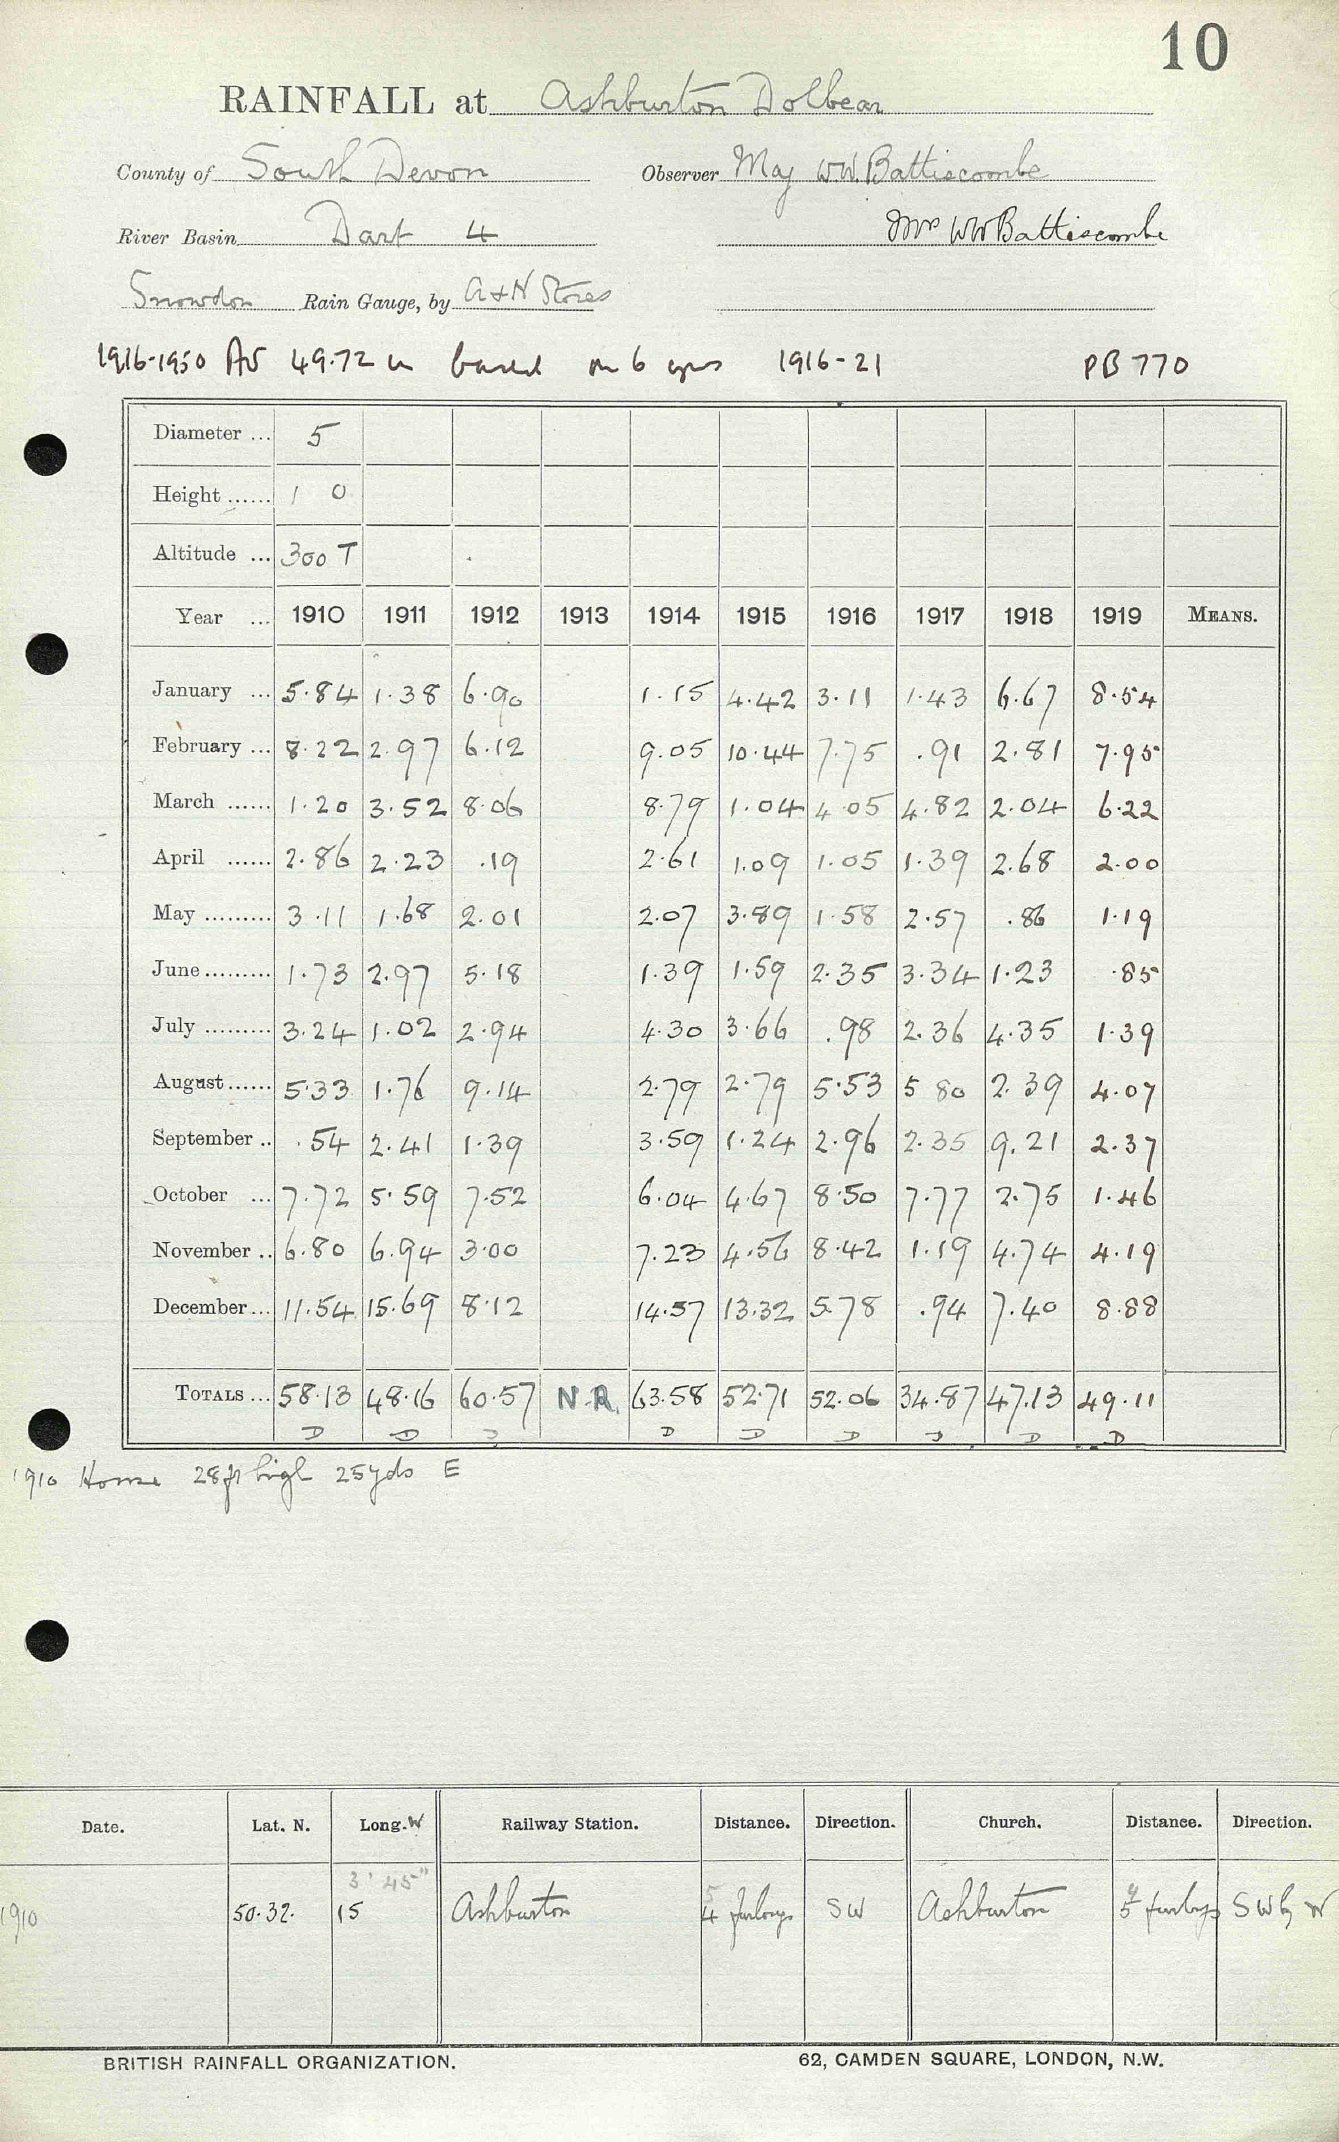 10
RAINFALL at Ashburton Dolbear
County of South Devon Observer Maj W.W. Battiscombe
River Basin Dart 4 Mrs WW Battiscombe
Snowdon Rain Gauge, by A & N Stores
1916-1950 Av 49.72 in based on 6 yrs 1916-21 PB 770
Diameter ... 5
Height ...... 1 0
Altitude ... 300 T
Year ... 1910 1911 1912 1913 1914 1915 1916 1917 1918 1919 MEANS.
January ... 5.84 1.38 6.90 1.15 4.42 3.11 1.43 6.67 8.54
February ... 8.22 2.97 6.12 9.05 10.44 7.75 .91 2.81 7.95
March ...... 1.20 3.52 8.06 8.79 1.04 4.05 4.82 2.04 6.22
April ...... 2.86 2.23 .19 2.61 1.09 1.05 1.39 2.68 2.00
May ......... 3.11 1.68 2.01 2.07 3.89 1.58 2.57 .86 1.19
June ......... 1.73 2.97 5.18 1.39 1.59 2.35 3.34 1.23 .85
July ......... 3.24 1.02 2.94 4.30 3.66 .98 2.36 4.35 1.39
August ...... 5.33 1.76 9.14 2.79 2.79 5.53 5 80 2.39 4.07
September .. .54 2.41 1.39 3.59 1.24 2.96 2.35 9.21 2.37
October ... 7.72 5.59 7.52 6.04 4.67 8.50 7.77 2.75 1.46
November .. 6.80 6.94 3.00 7.23 4.56 8.42 1.19 4.74 4.19
December ... 11.54 15.69 8.12 14.57 13.32 5.78 .94 7.40 8.88
TOTALS ... 58.13 48.16 60.57 N.R. 63.58 52.71 52.06 34.87 47.13 49.11
D D D D D D D D D
1910 House 28ft high 25yds E
Date. Lat. N. Long. W Railway Station. Distance. Direction. Church. Distance. Direction.
3' 45"
1910 50.32. 15 Ashburton 4 furlongs SW Ashburton 5 furlongs SW by W
BRITISH RAINFALL ORGANIZATION. 62, CAMDEN SQUARE, LONDON, N.W.